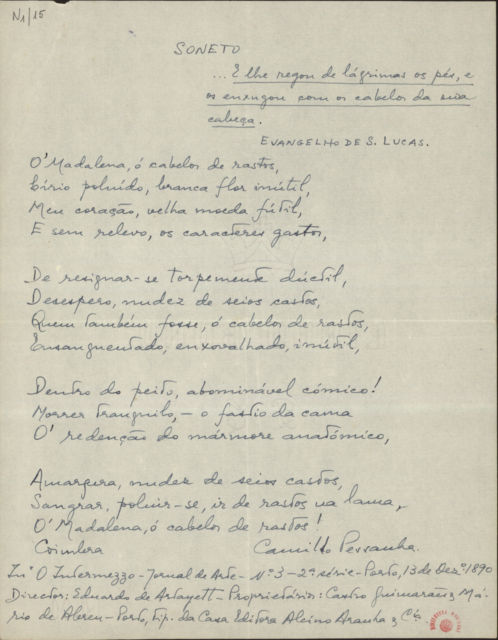 N1/15
SONETO
... E lhe regou de lágrimas os pés, e
os enxugou com os cabelos da sua
cabeça.
EVANGELHO DE S. LUCAS.
O' Madalena, ó cabelos de rastos,
Lírio poluído, branca flor inútil,
Meu coração, velha moeda fútil,
E sem relevo, os caracteres gastos,
De resignar-se torpemente dúctil,
Desespero, nudez de seios castos,
Quem também fosse, ó cabelos de rastos,
Ensanguentado, enxovalhado, inútil,
Dentro do peito, abominável cómico!
Morrer tranquilo, – o fastio da cama
O' redenção do mármore anatómico,
Amargura, nudez de seios castos,
Sangrar, poluir-se, ir de rastos na lama,
O' Madalena, ó cabelos de rastos!
Coimbra Camillo Pessanha.
In: O Intermezzo - Jornal de Arte - Nº 3 - 2ª série - Porto, 13 de Dezº 1890
Director: Eduardo de Artayett - Proprietários: Castro Guimarães, Má-
rio de Abreu - Porto, Tip. da Casa Editora Alcino Aranha & Cª.